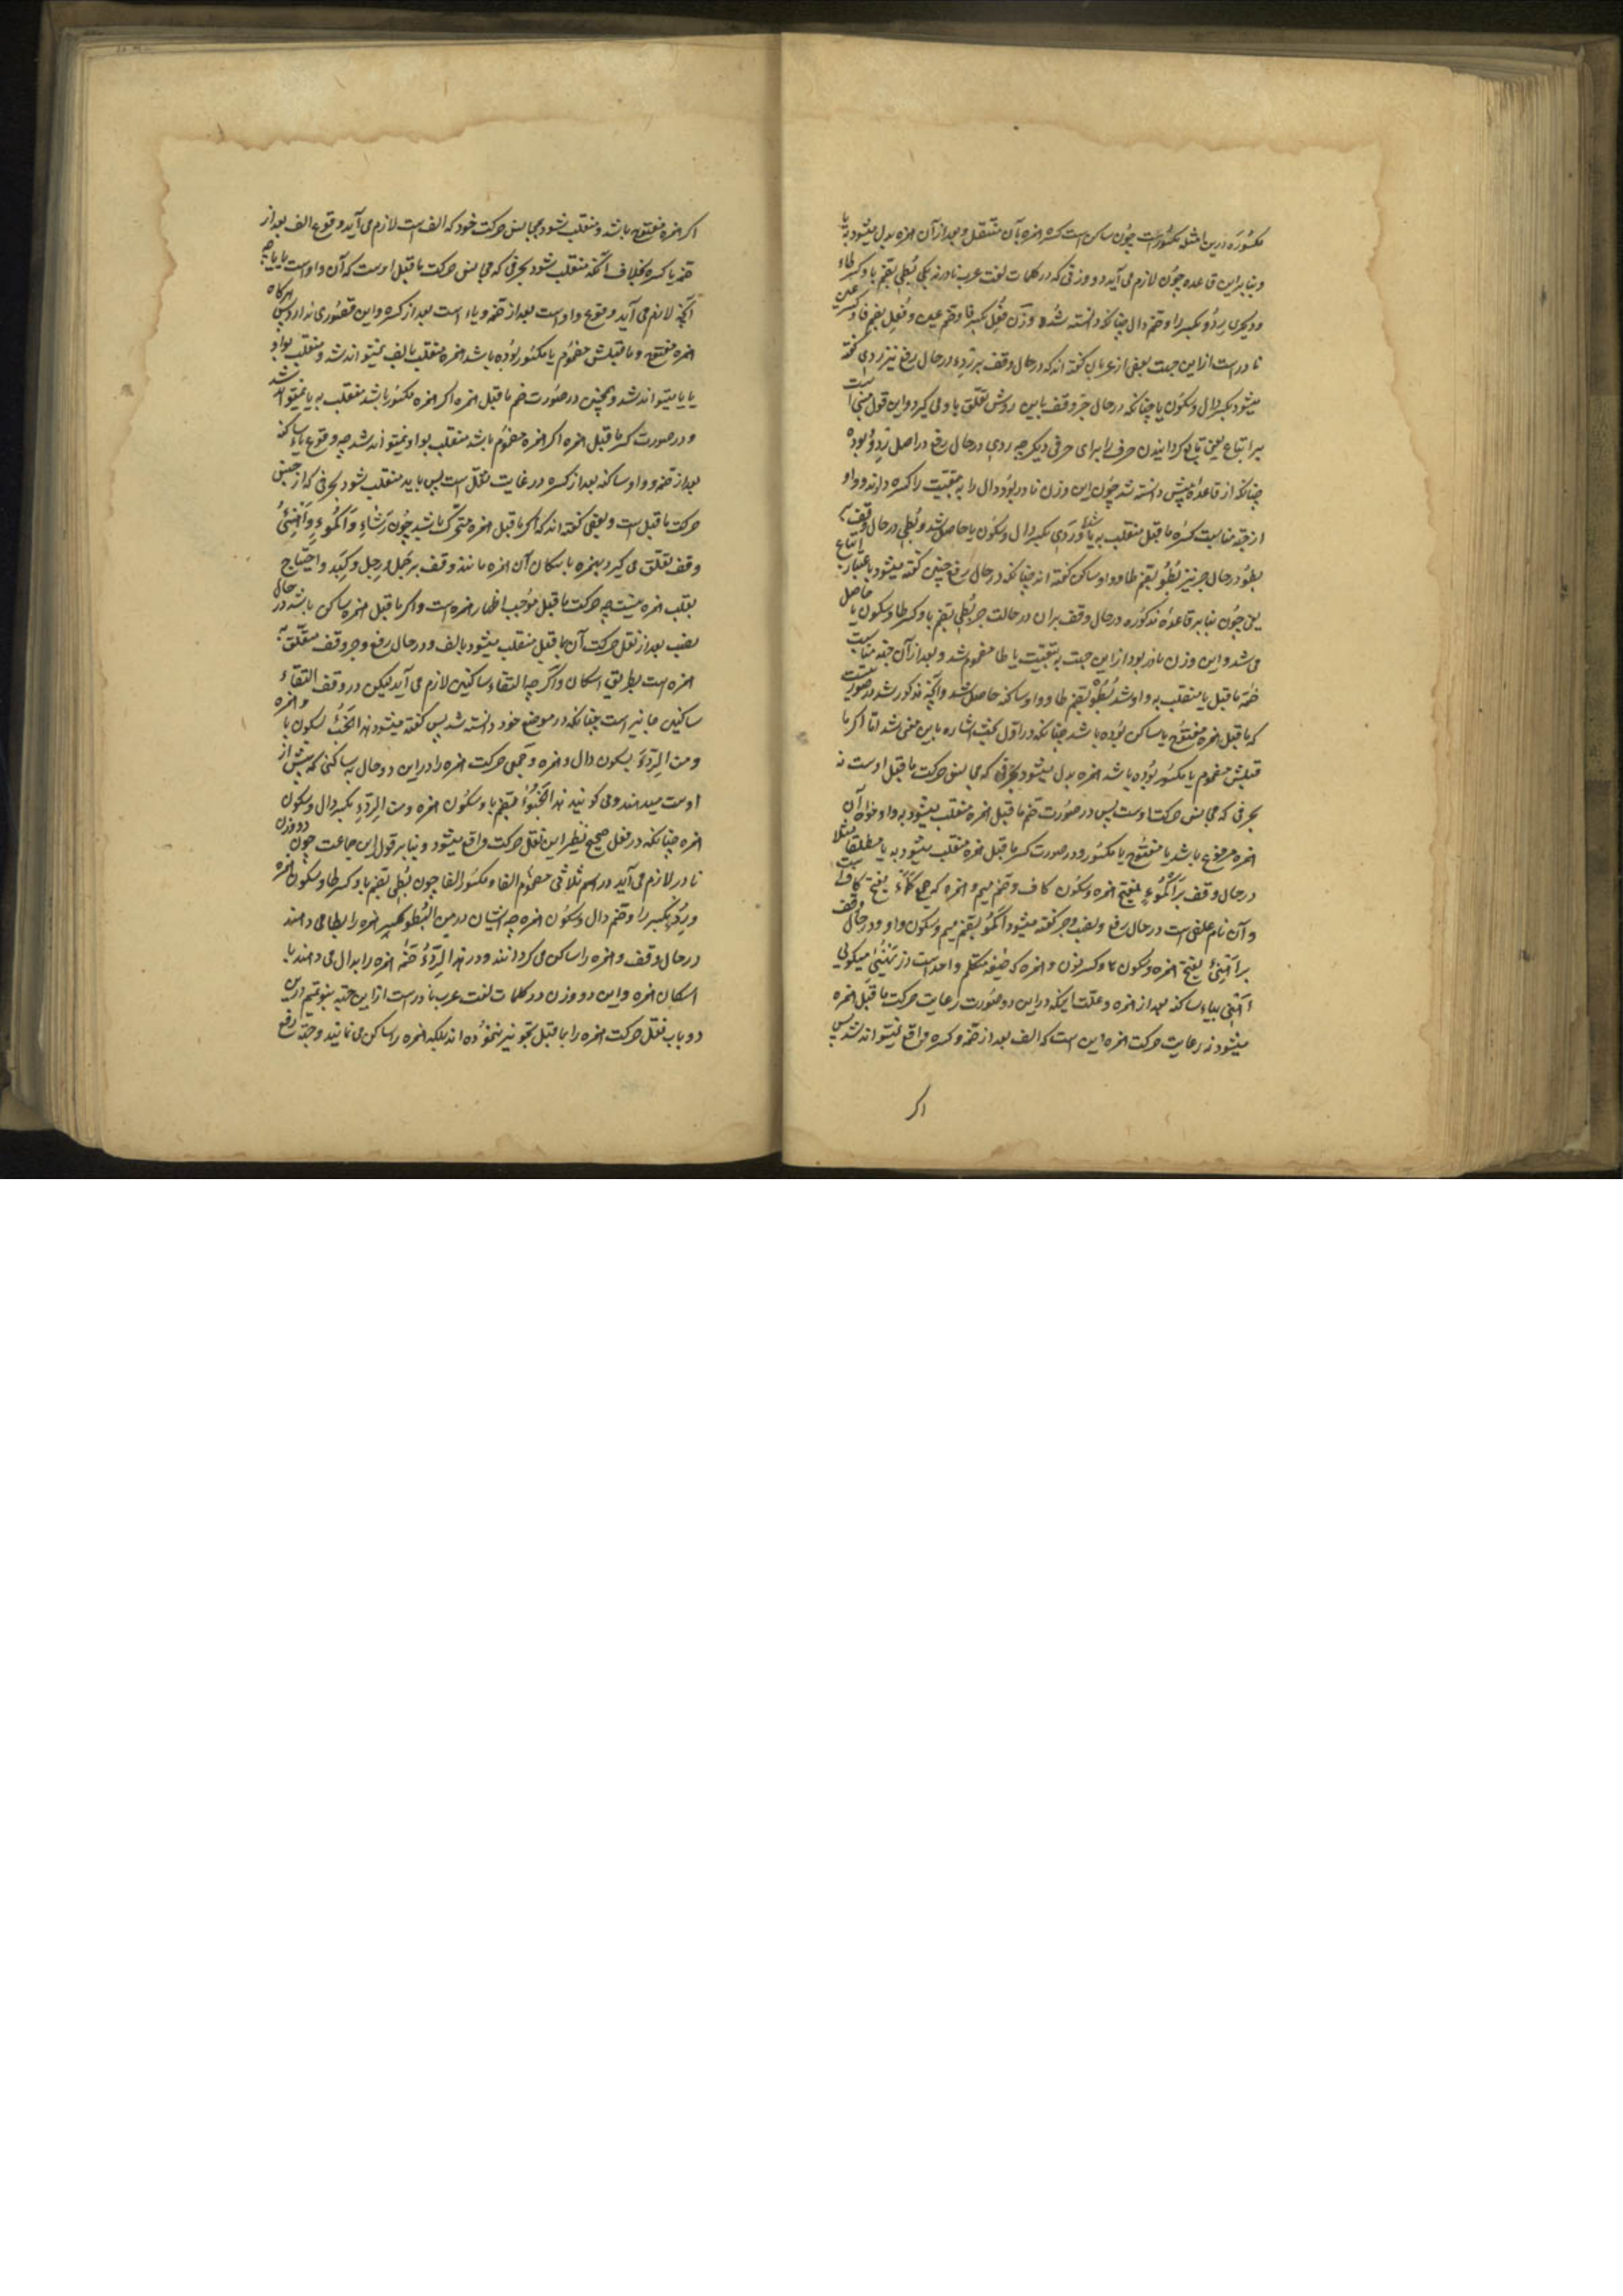 مکسوره درین امثله مکسور است چون ساکن است کسره همزه بآن منتقل و بعد از آن همزه بدل میشود به یا
و بنابراین قاعده چون لازم می آید دو وزنی که در کلمات لغت عرب نادرند یکی بُطِی بضم با و کسر طاء
و دیگری رِدُو بکسر را و ضم دال چنانکه دانسته شد و وزن فِعُل بکسر فا و ضم عین و فُعِل بضم فا و کسر عین
نادر است ازاین جهت بعضی از عربان گفته اند که در حال وقف بر رِدء در حال رفع نیز ردی گفته
میشود بکسر دال و سکون یا چنانکه در حال جر وقف باین روش تعلق باو می گیرد و این قول مبنی است
بر اتباع یعنی تابع گردانیدن حرفی را برای حرفی دیگر چه ردی در حال رفع در اصل رِدُو بوده
چنانکه از قاعده پیش دانسته شد چون این وزن نادر بود دال را به تبعیت را کسره دادند و واو
از جهة مناسبت کسره ما قبل منقلب به یا شد و ردی بکسر دال و سکون یا حاصل شد و بُطِی در حال وقف به
بطؤ در حال جر نیز بُطُو بضم طا و واو ساکن گفته اند چنانکه در حال رفع چنین گفته میشود باعتبار اتباع
یعنی چون بنابر قاعده مذکوره در حال وقف بران در حالت جر بُطِی بضم با و کسر طا و سکون یا حاصل
می شد و این وزن نادر بود ازاین جهت به تبعیت با طا مضموم شد و بعد از آن جهة مناسبت
ضمه ما قبل یا منقلب به واو شد بُطُو بضم طا و واو ساکنه حاصل شد و آنچه مذکور شد در صورتیست
که ما قبل همزه مفتوح یا ساکن بوده باشد چنانکه در اول بحث اشاره باین معنی شد اما اگر ما
قبلش مضموم یا مکسور بوده باشد همزه بدل میشود بحرفی که مجانس حرکت ما قبل اوست نه
بحرفی که مجانس حرکت اوست پس در صورت ضم ما قبل همزه منقلب میشود به واو خواه آن
همزه مرفوع باشد یا مفتوح یا مکسور و در صورت کسر ما قبل همزه منقلب میشود به یا مطلقا مثلا
در حال وقف بر اَکمُوء بفتح همزه و سکون کاف و ضم میم و همزه که جمع کَمْأ بفتح کاف است
و آن نام علفی است در حال رفع و نصب و جر گفته میشود اکمُو بضم میم و سکون واو و در حال وقف
بر اَهنِئ بفتح همزه و سکون ها و کسر نون و همزه که صیغه متکلم واحد است از میگوئی
اهنی بیاء ساکنه بعد از همزه و علت اینکه دراین دو صورت رعایت حرکت ما قبل همزه
میشود نه رعایت حرکت همزه این است که الف بعد از ضمه و کسره واقع نمیتواند شد پس
اکر
اکر همزه مفتوح باشد و منقلب شود بمجانس حرکت خود که الف است لازم می آید وقوع الف بعد از
ضمه یا کسره بخلاف آنکه منقلب شود بحرفی که مجانس حرکت ما قبل اوست که آن واو است یا یا چه
آنچه لازم می آید وقوع واو است بعد از ضمه و یاء است بعد از کسره و این قصوری ندارد پس هرکاه
همزه مفتوح و ما قبلش مضموم یا مکسور بوده باشد همزه منقلب بالف نمیتواند شد و منقلب بواو
یا یا میتواند شد و همچنین در صورت ضم ما قبل همزه اکر همزه مکسور باشد منقلب به یا نمیتواند شد
و در صورت کسر ما قبل همزه اکر همزه مضموم باشد منقلب بواو نمیتواند شد چه وقوع یاء ساکنه
بعد از ضمه و واو ساکنه بعد از کسره در غایت ثقل است پس باید منقلب شود بحرفی که از جنس
حرکت ما قبل است و بعضی گفته اند که اکر ما قبل همزه متحرک باشد چون رَشَاءٍ وَاَکْمُوءٍ وَاَهْنِئُ
وقف تعلق می گیرد بهمزه باسکان آن همزه مانند وقف بر جَبَل و رَجِل و کَبِد و احتیاج
بقلب همزه نیست چه حرکت ما قبل موجب اظهار همزه است و اکر ما قبل همزه ساکن باشد در حال
نصب بعد از نقل حرکت آن بما قبل منقلب میشود بالف و در حال رفع و جر وقف متعلق به
همزه است بطریق اسکان و اگر چه التقاء ساکنین لازم می آید لیکن در وقف التقاء
ساکنین جایز است چنانکه در موضع خود دانسته شد پس گفته میشود هذا الخَبْءُ بسکون با و همزه
و من الرِدْءِ بسکون دال و همزه و جمعی حرکت همزه را دراین دو حال به ساکنی که پیش از
اوست میدهند و می کویند هذا الخَبُؤ بضم با و سکون همزه و من الرِدِء بکسر دال و سکون
همزه چنانکه در فعل صحیح نظیر این نقل حرکت واقع میشود و بنابر قول این جماعت چون دو وزن
نادر لازم می آید در اسم ثلاثی مضموم الفا و مکسور الفا چون بُطِئ بضم با و کسر طا و سکون همزه
و رِدُء بکسر را و ضم دال و سکون همزه چه ایشان در من البُطْءِ کسره همزه را بطا می دهند
در حال وقف و همزه را ساکن می کردانند و در هذا الرِدْءُ ضمه همزه را بدال می دهند با
اسکان همزه و این دو وزن در کلمات لغت عرب نادر است ازاین جهة بنو تمیم درین
دو باب نقل حرکت همزه را بما قبل تجویز ننموده اند بلکه همزه را ساکن می نمایند و جهة رفع